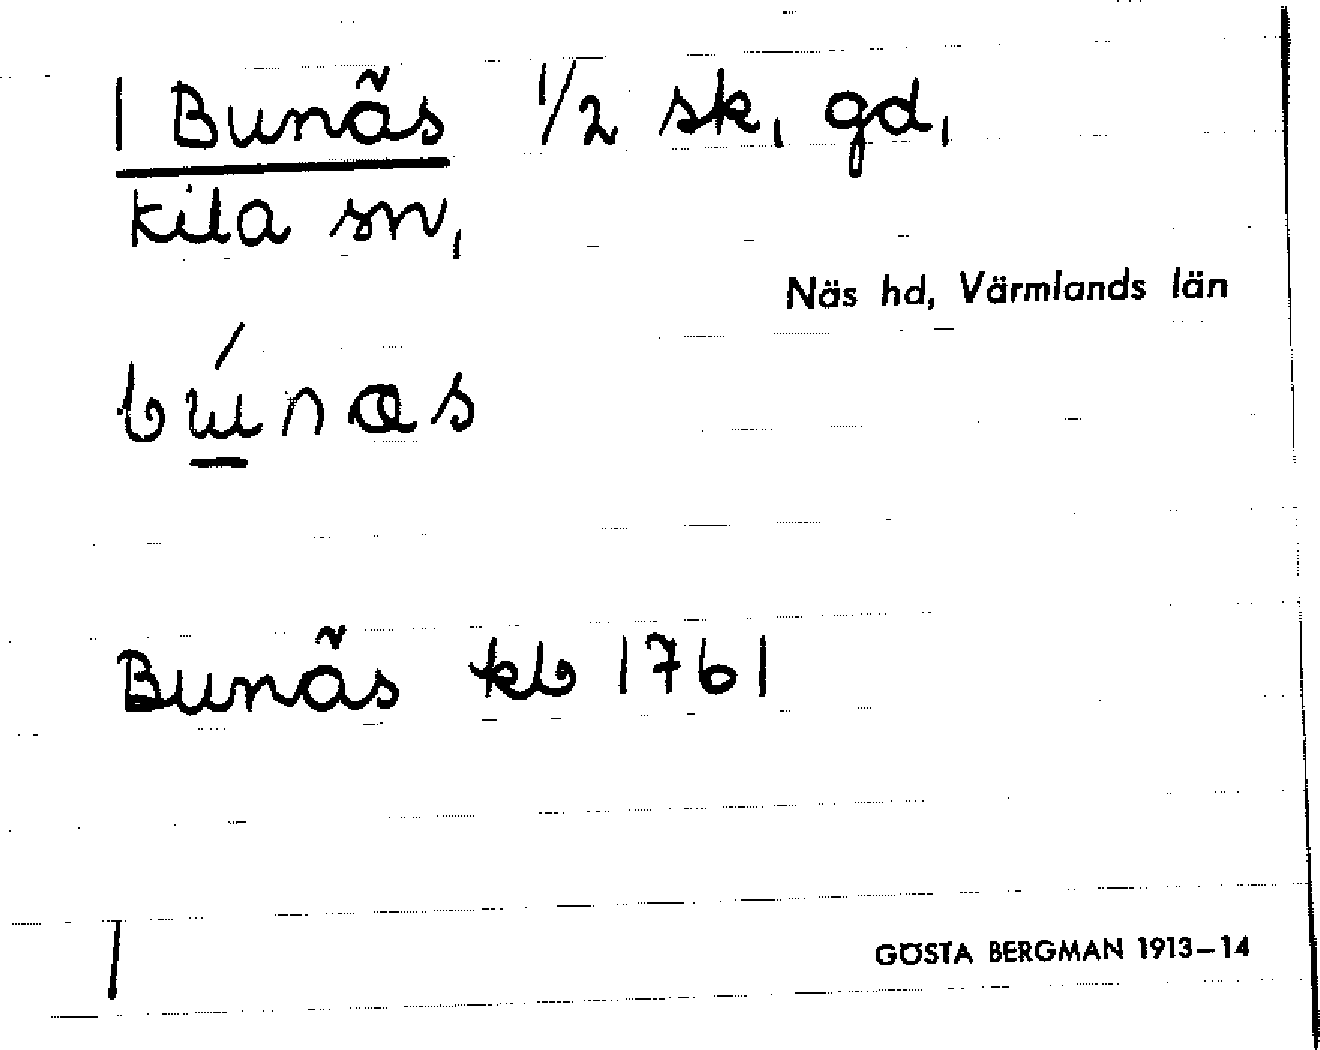 1 Bunäs 1/2 sk, gd,
Kila sn,
Näs hd, Värmlands län
búnas
Bunäs kb 1761
GÖSTA BERGMAN 1913–14